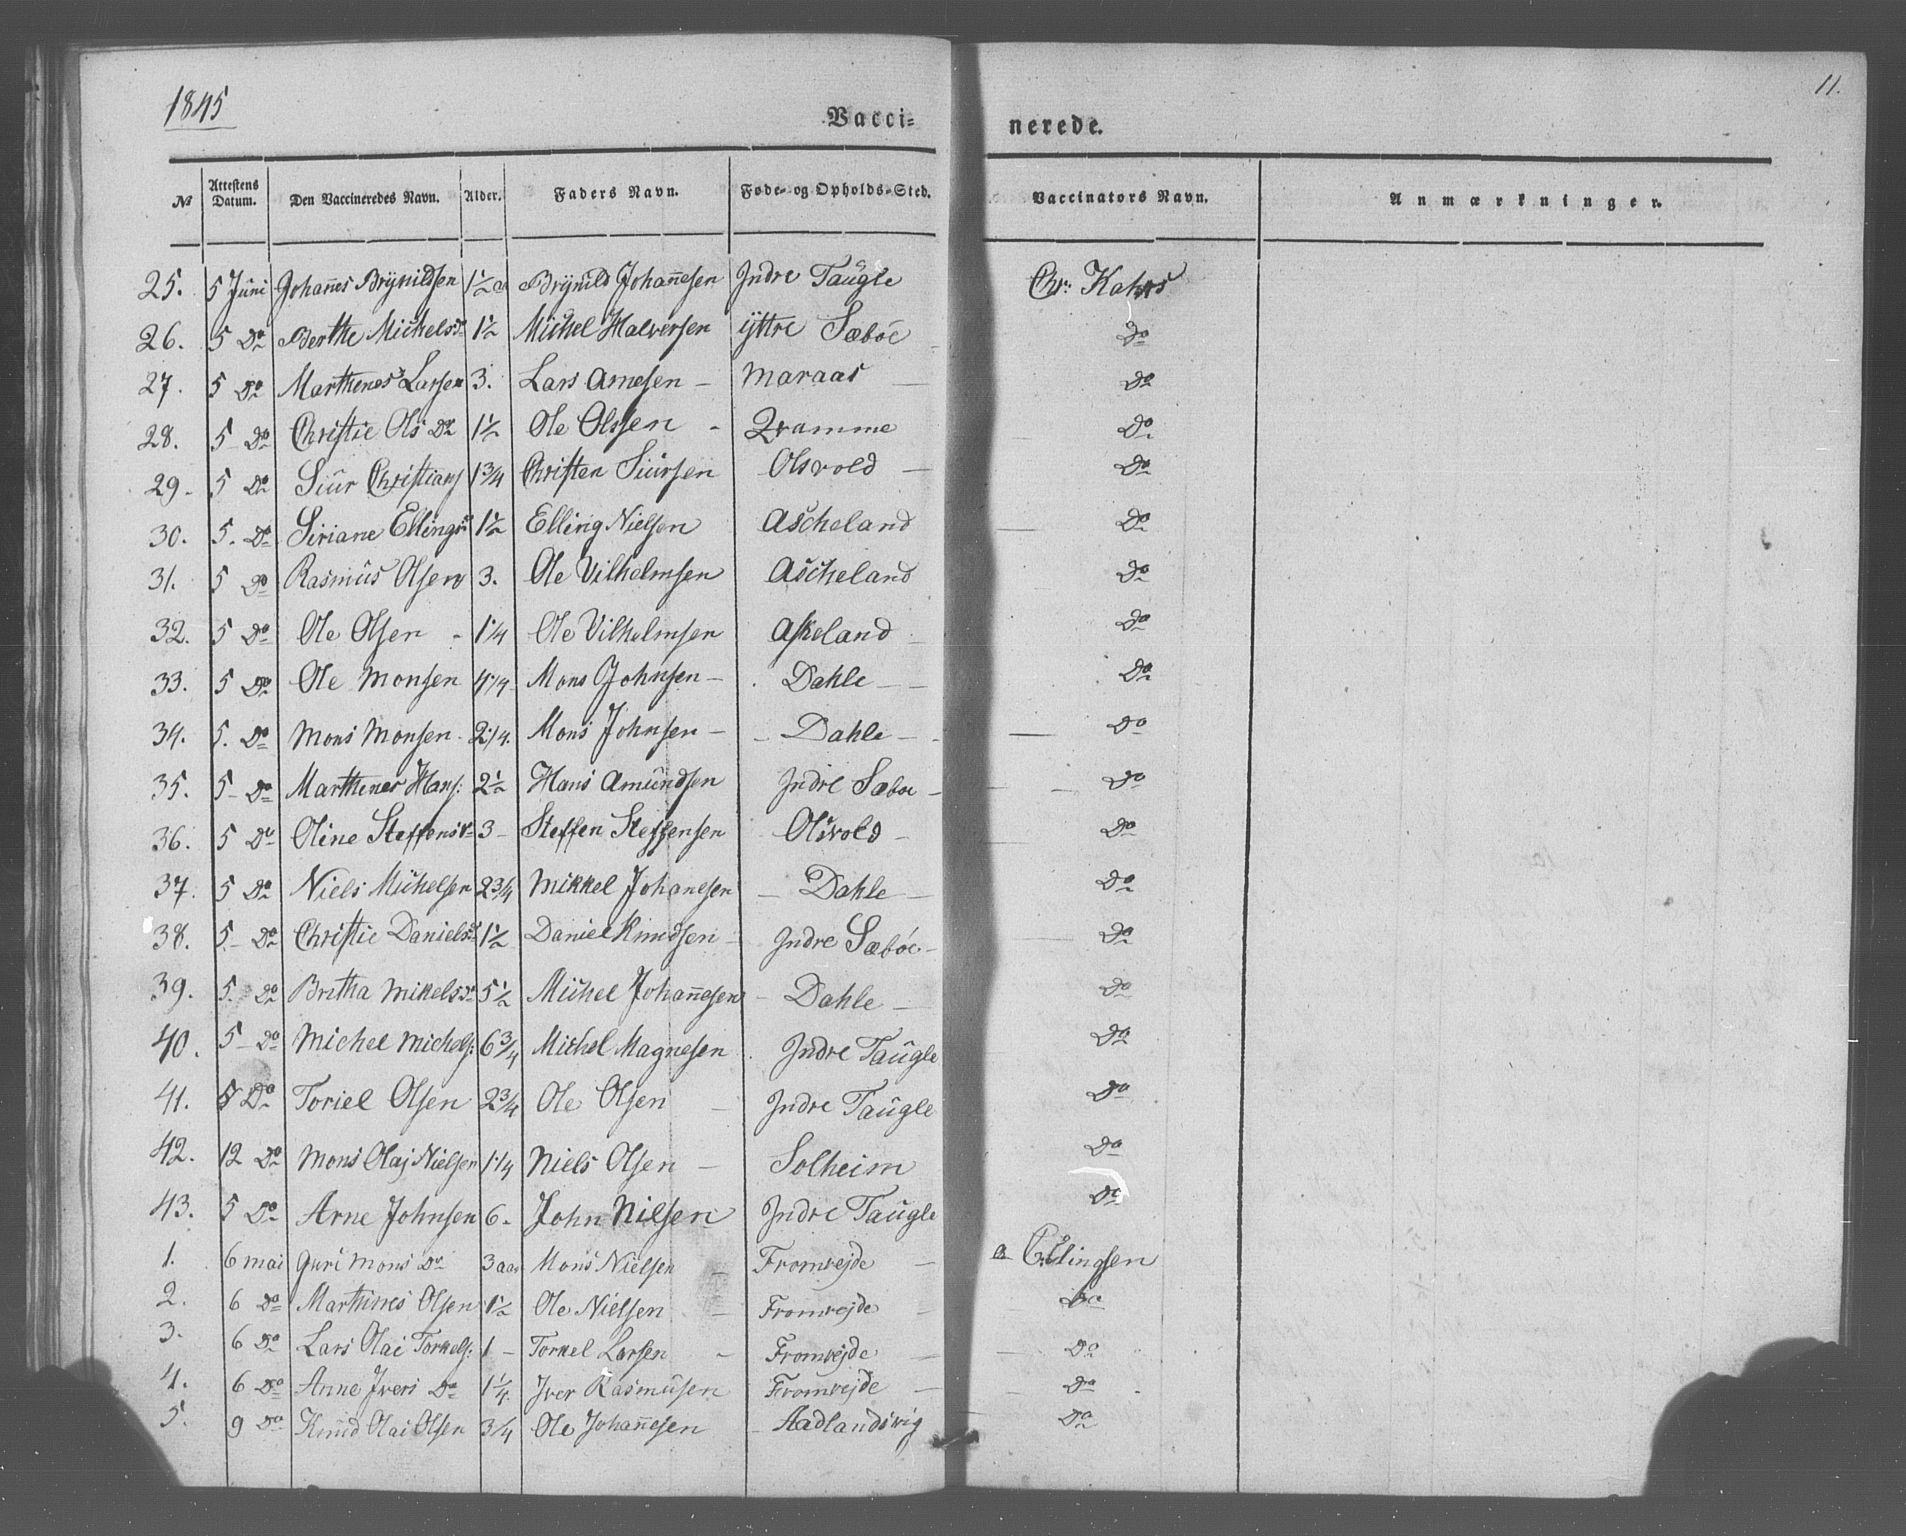 1845
11.
Vacci= nerede.
No Attestens Datum. Den Vaccineredes Navn. Alder. Faders Navn. Føde- og Opholds-Sted. Vaccinators Navn. Anmærkninger.
25. 5 Juni Johannes Brÿnildsen 1½ Brÿnild Johannesen Indre Taugle Chr: Kahrs
26. 5 Do Berthe Michelsd 1½ Michel Halversen ÿttre Sæbøe Do
27. 5 Do Marthenes Larsen 3. Lars Arnesen – Maraas Do
28. 5 Do Christie Ols Dr 1½ Ole Olssen - Qvamme Do
29. 5 Do Siur Christians 1¾ Christen Siursen Olsvold – Do
30. 5. Do Siriane Ellings 1½ Elling Nielsen Ascheland Do
31. 5 Do Rasmus Olsen 3. Ole Vilhelmsen Ascheland Do
32. 5 Do Ole Olsen - 1¼ Ole Vilhelmsen Askeland Do
33. 5 Do Ole Monsen 4¼ Mons Johnsen – Dahle – Do
34. 5. Do Mons Monsen 2¼. Mons Johnsen – Dahle – Do
35. 5 Do Marthenes Hans: 2½ Hans Amundsen Indre Sæboe Do
36. 5 Do Oline Steffens 3 – Steffen Steffensen Olsvold – Do
37. 5 Do Niels Michelsen 2¾ Mikkel Johanesen – Dahle – Do
38. 5 – Do Christie Daniels 1½ Daniel Knudsen – Indre Sæbóe – Do
39. 5. Do Britha Mikelsdr 5½ Michel Johannesen – Dahle – Do
40. 5 – Do Michel Michels: 6¾ Michel Magnesen Indre Taugle Do
41. 5 Do Toriel Olsen 2¾ Ole Olsen – Indre Taugle Do
42. 12 Do Mons Olaj Nielsen 1¼ Niels Olsen – Solheim Do
43. 5 Do Arne Johnsen 6. John Nilsen Indre Taugle Do
1. 6 mai Guri Mons Dr 3 aar Mons Nielsen – Fromrejde – Ellingsen
2. 6 Do Marthines Olsen 1½ Ole Nielsen – Fromrejde – Do
3. 6 Do Lars Olai Torkels: 1 – Torkel Larsen – Fromrejde – Do
4. 6 Do Anne Ivers Dr 1¼. Iver Rasmusen Fromrejde – Do
5. 9 Do Knud Olai Olsen 3/4 Ole Johannesen – Aadlandsvig Do